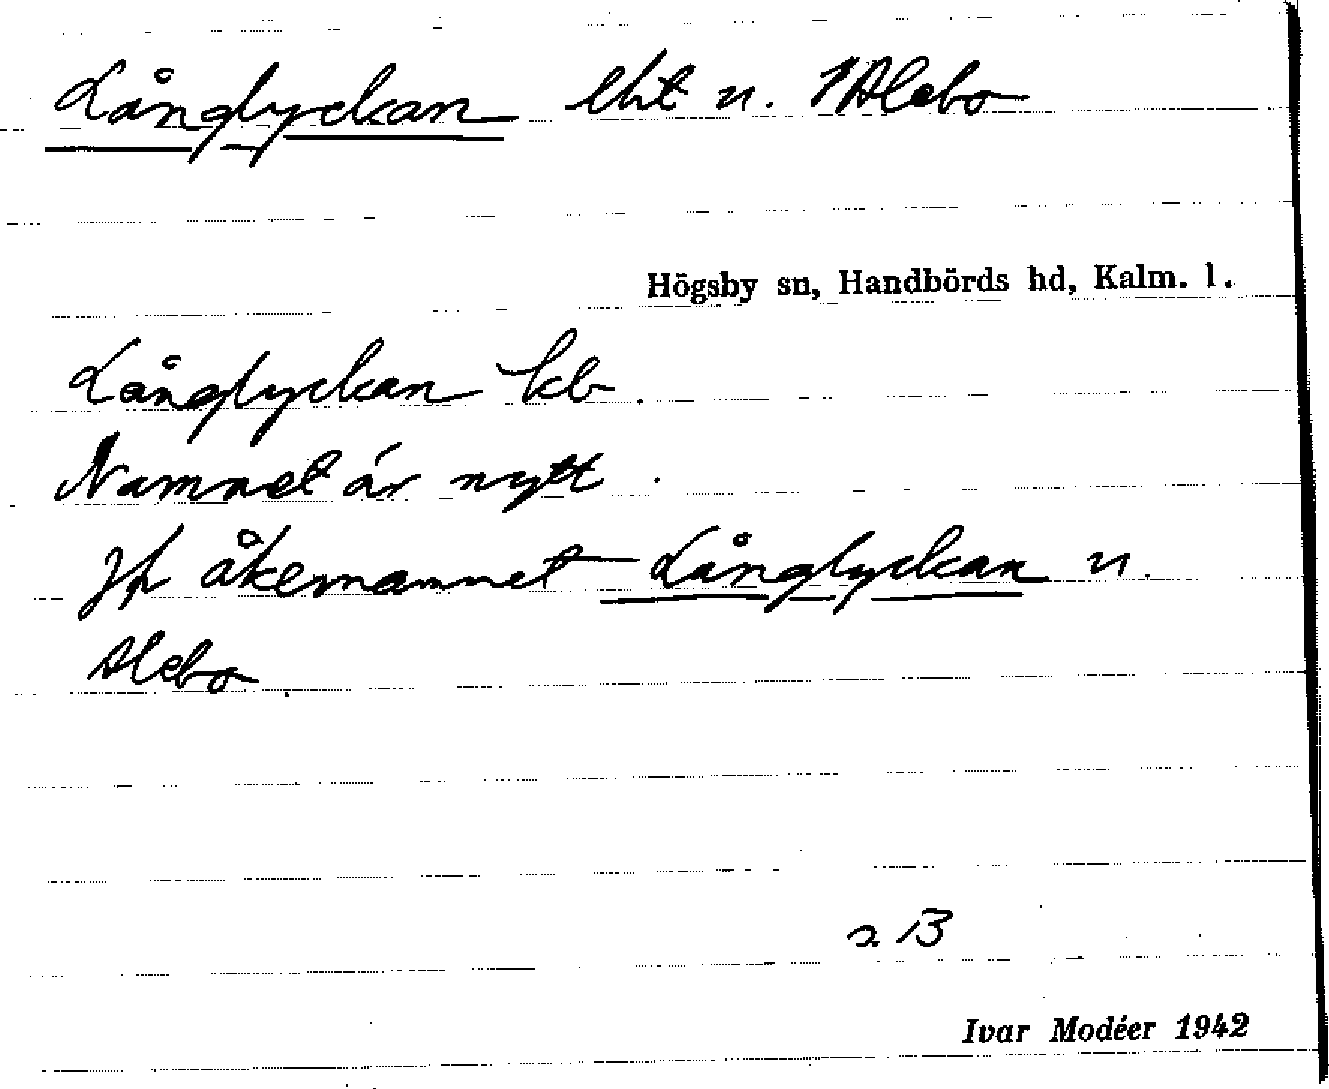 Långlyckan lht u. 1 Alebo
Högsby sn, Handbörds hd, Kalm. l.
Långlyckan kb.
Namnet är nytt.
Jfr åkernamnet Långlyckan u.
Alebo
B
Ivar Modéer 1942